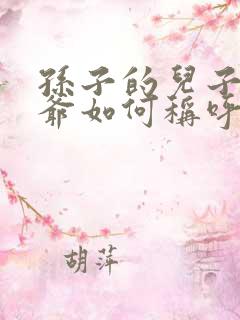 孫子的兒子
爺如何稱呼
胡萍